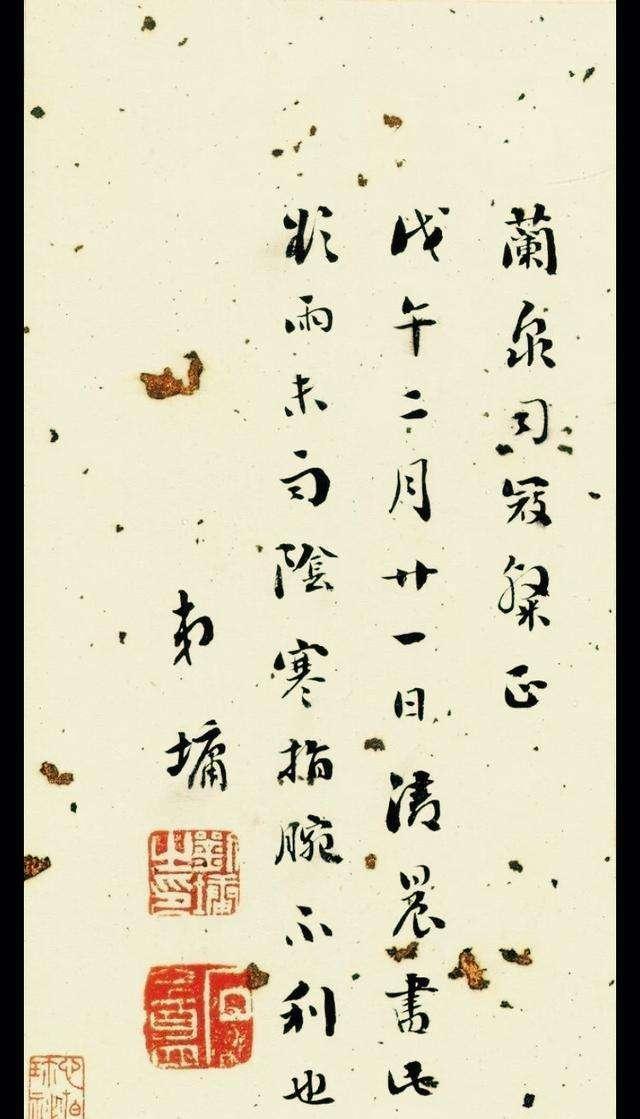 蘭泉司寇粲正
戊午二月廿一日清晨書此
欲雨未雨陰寒指腕不利也
弟墉
劉墉之印
石菴